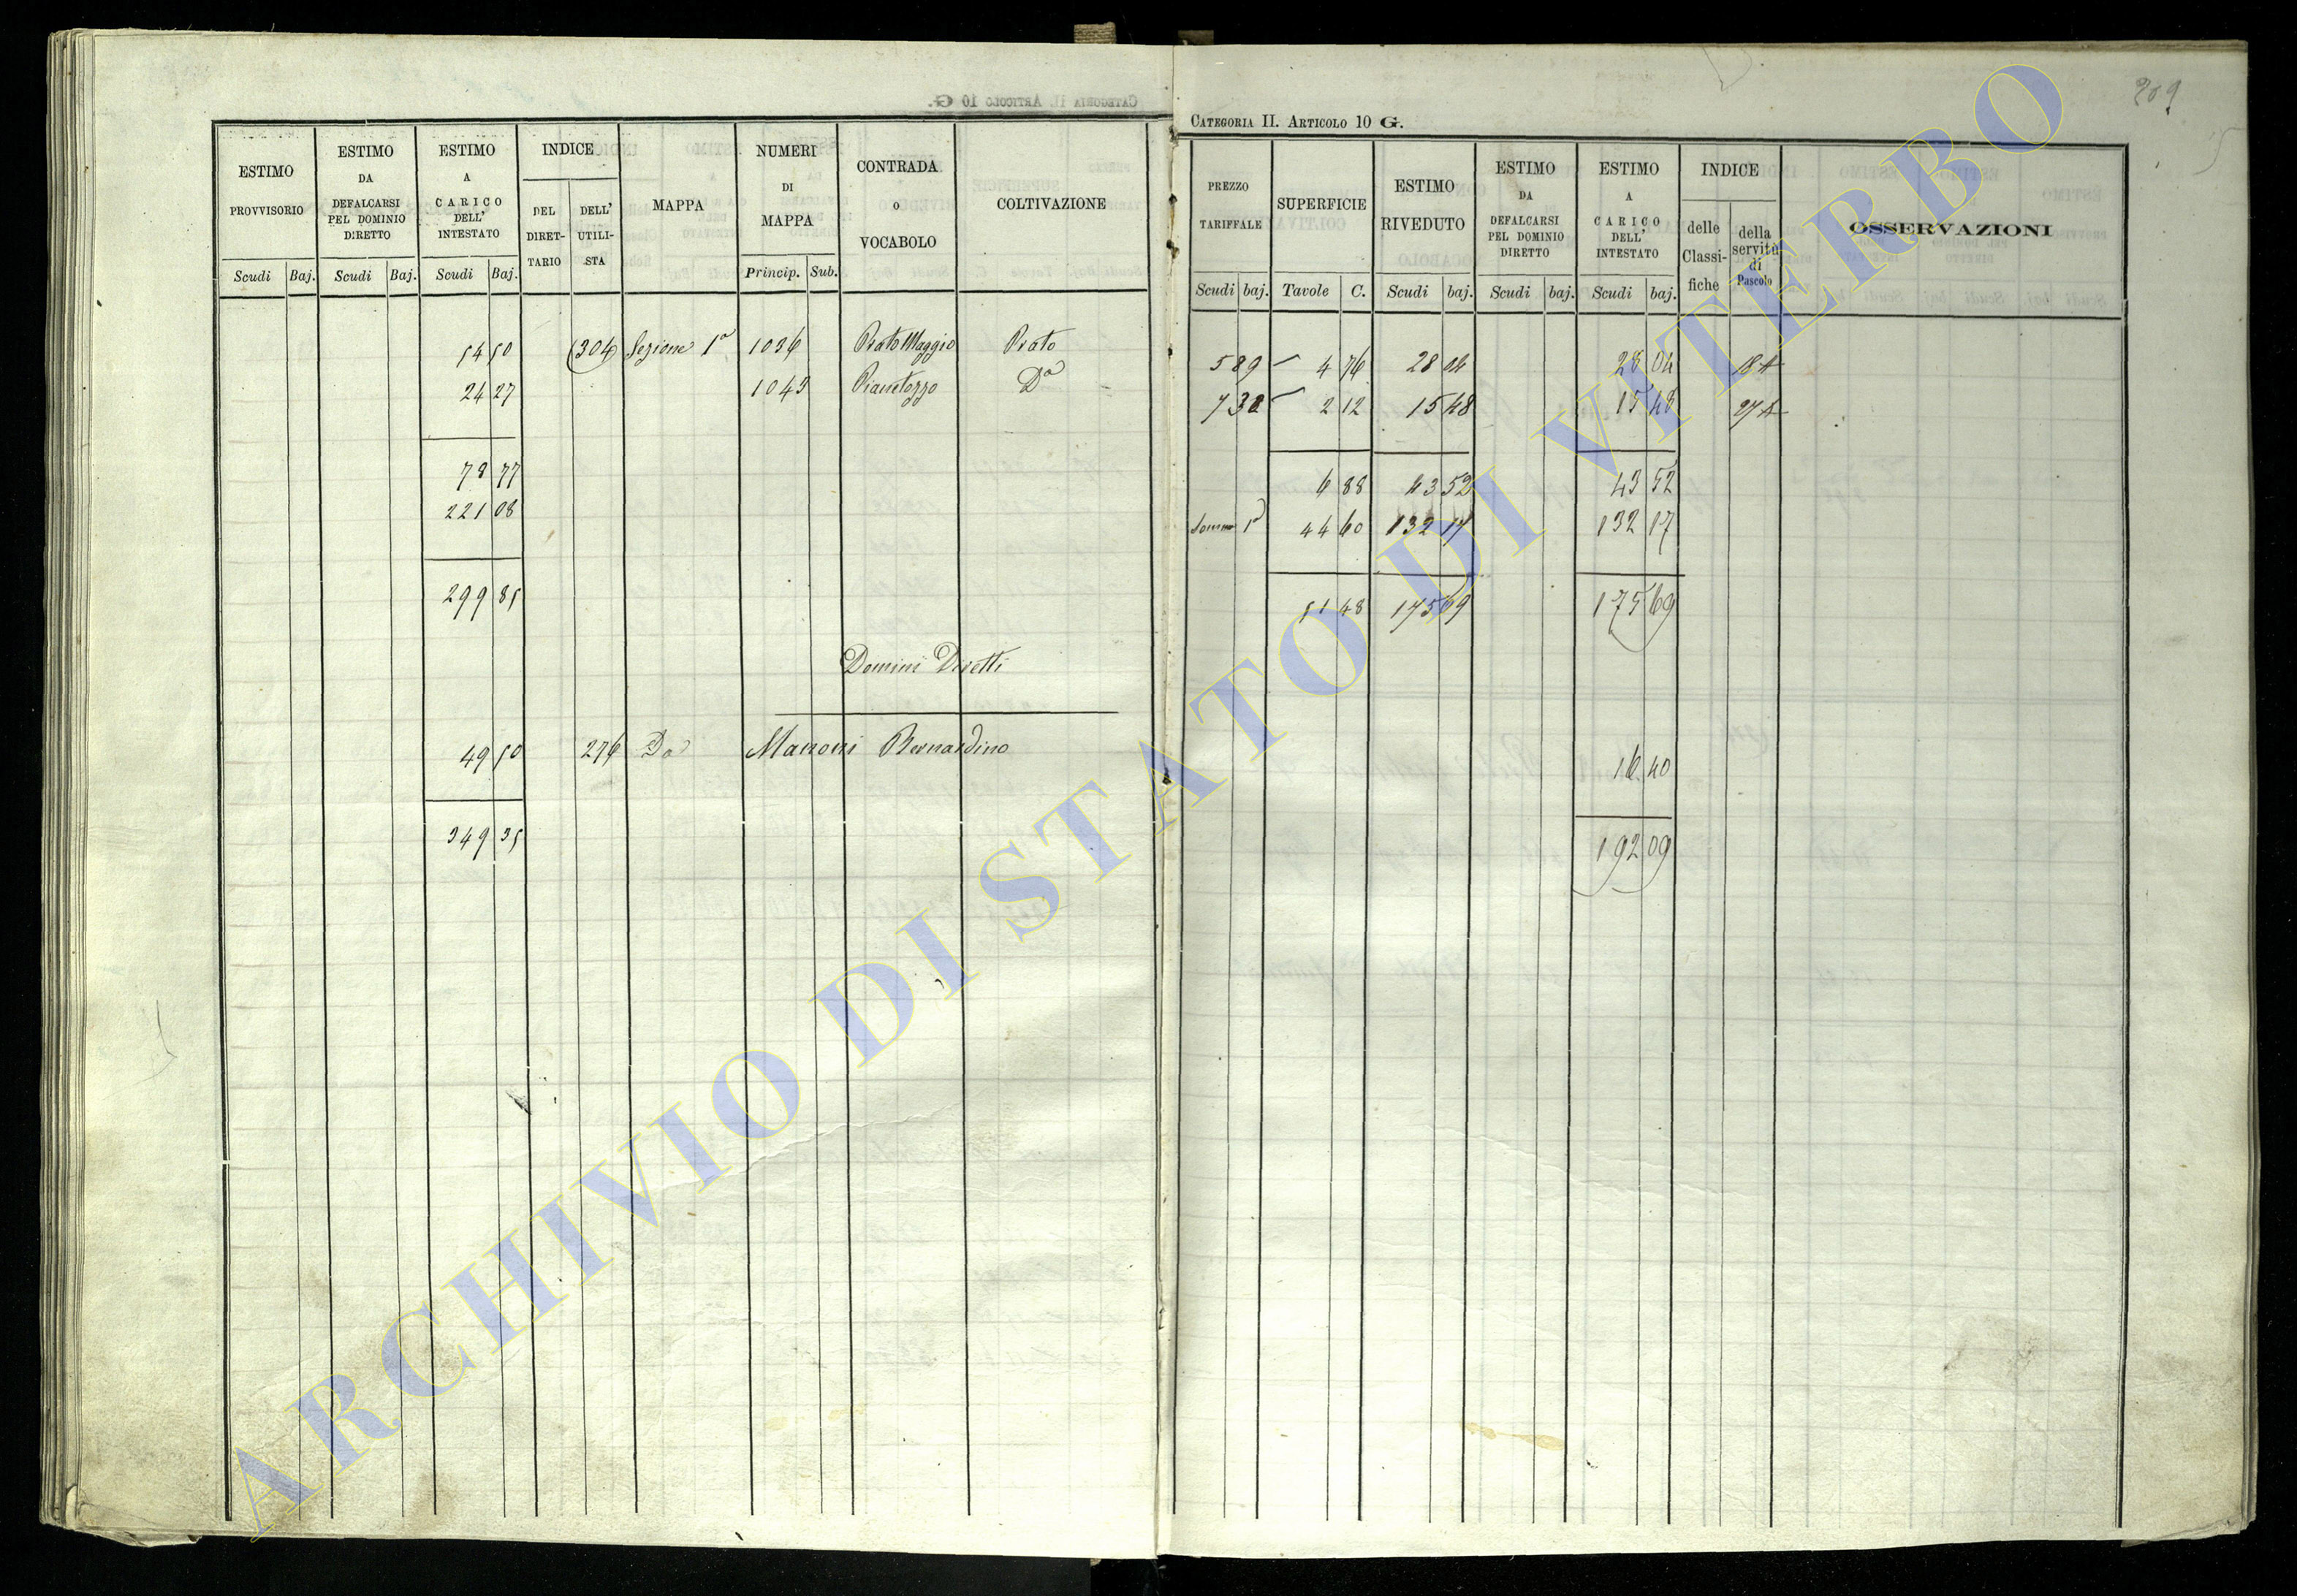 209
CATEGORIA II. ARTICOLO 10 G.
ESTIMO PROVVISORIO
ESTIMO DA DEFALCARSI PEL DOMINIO DIRETTO
ESTIMO A CARICO DELL' INTESTATO
INDICE
DEL DIRETTARIO
DELL' UTILISTA
MAPPA
NUMERI DI MAPPA
CONTRADA o VOCABOLO
COLTIVAZIONE
Scudi Baj. Scudi Baj. Scudi Baj. Princip. Sub.
54 50 (304) Sezione 1a 1036 Prato Maggio Prato
24 27 1043 Pianetozzo Do
78 77
221 08
299 85
Domini Diretti
49 50 276 Do Mannoni Bernardino
349 35
CATEGORIA II. ARTICOLO 10 G.
PREZZO TARIFFALE
SUPERFICIE
ESTIMO RIVEDUTO
ESTIMO DA DEFALCARSI PEL DOMINIO DIRETTO
ESTIMO A CARICO DELL' INTESTATO
INDICE
delle Classifiche
della servitù di Pascolo
OSSERVAZIONI
Scudi baj. Tavole C. Scudi baj. Scudi baj. Scudi baj.
5 89 – 4 76 28 04 28 04 18 A
7 30 – 2 12 15 48 15 48 27 A
6 88 43 52 43 52
Somma 1a 44 60 132 17 132 17
51 48 175 69 175 69
16 40
192 09
ARCHIVIO DI STATO DI VITERBO